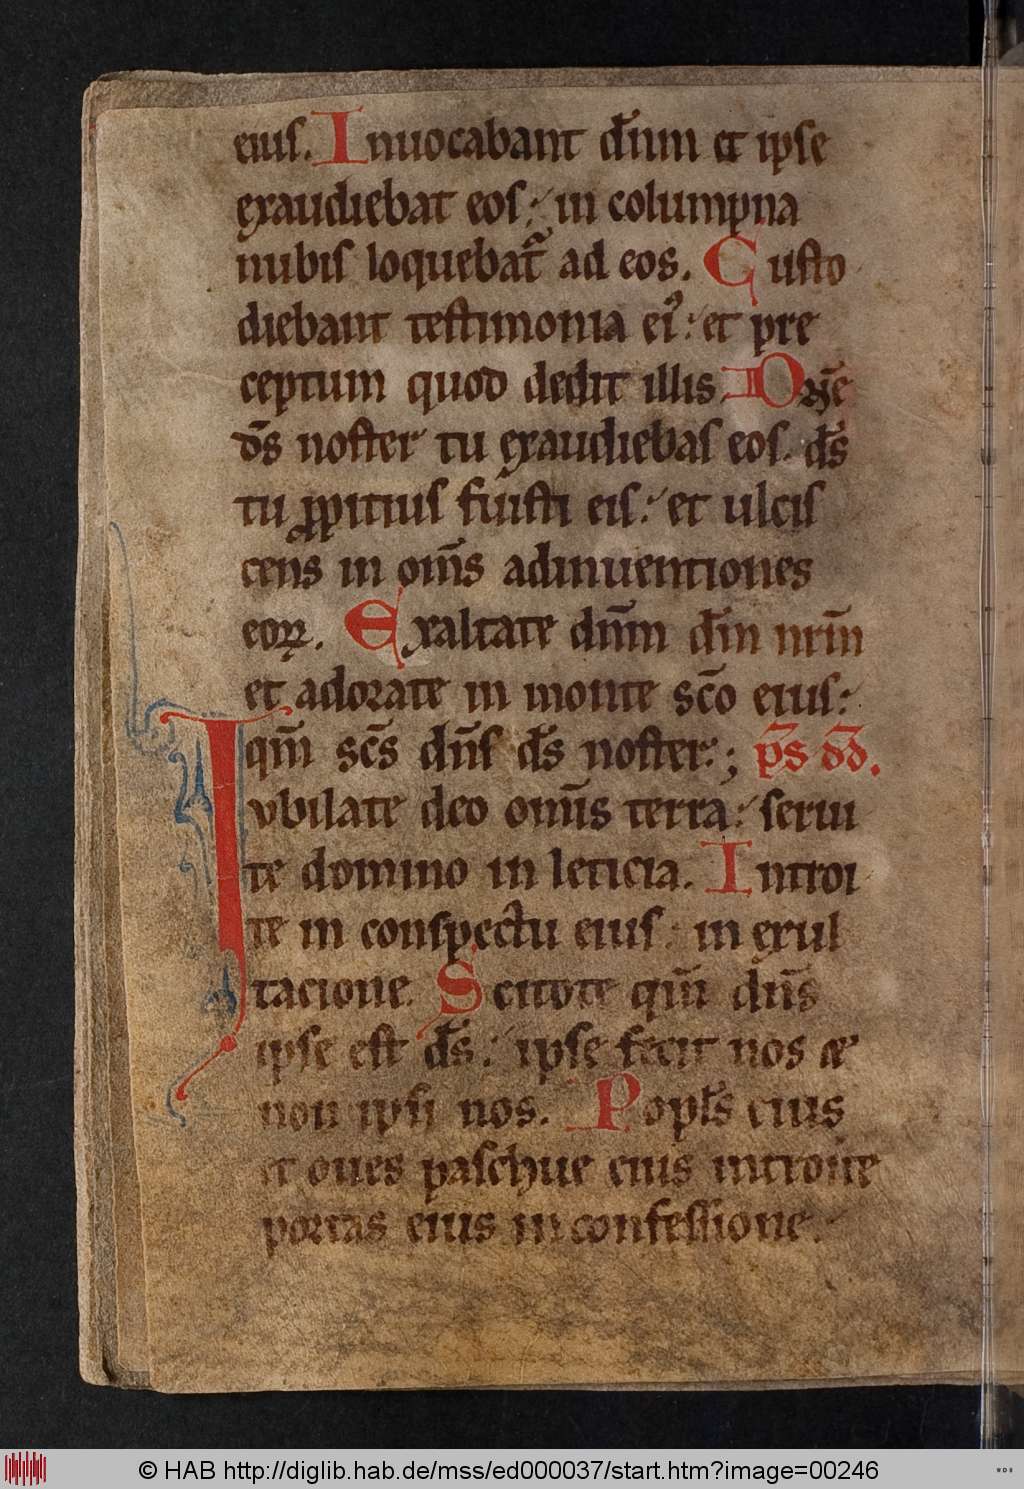 eius. Inuocabant dn̄m et ipse
exaudiebat eos: in columpna
nubis loquebat᷑ ad eos. Custo
diebant testimonia eiꝰ: et pre
ceptum quod dedit illis. Dn̄e
ds̄ noster tu exaudiebas eos. ds̄
tu ꝓpitius fuisti eis: et ulcis
cens in om̄s adinuentiones
eoꝝ. Exaltate dn̄m dm̄ nrm̄
et adorate in monte sc̄o eius:
qm̄ sc̄s dn̄s ds̄ noster:; ps̄ dd̄.
Jubilate deo omīs terra: serui
te domino in leticia. Introi
te in conspectu eius: in exul
tacione. Scitote qm̄ dn̄s
ipse est ds̄: ipse fecit nos et
non ipsi nos. Popls̄ eius
et oues paschue eius introite
portas eius in confessione:
© HAB http://diglib.hab.de/mss/ed000037/start.htm?image=00246